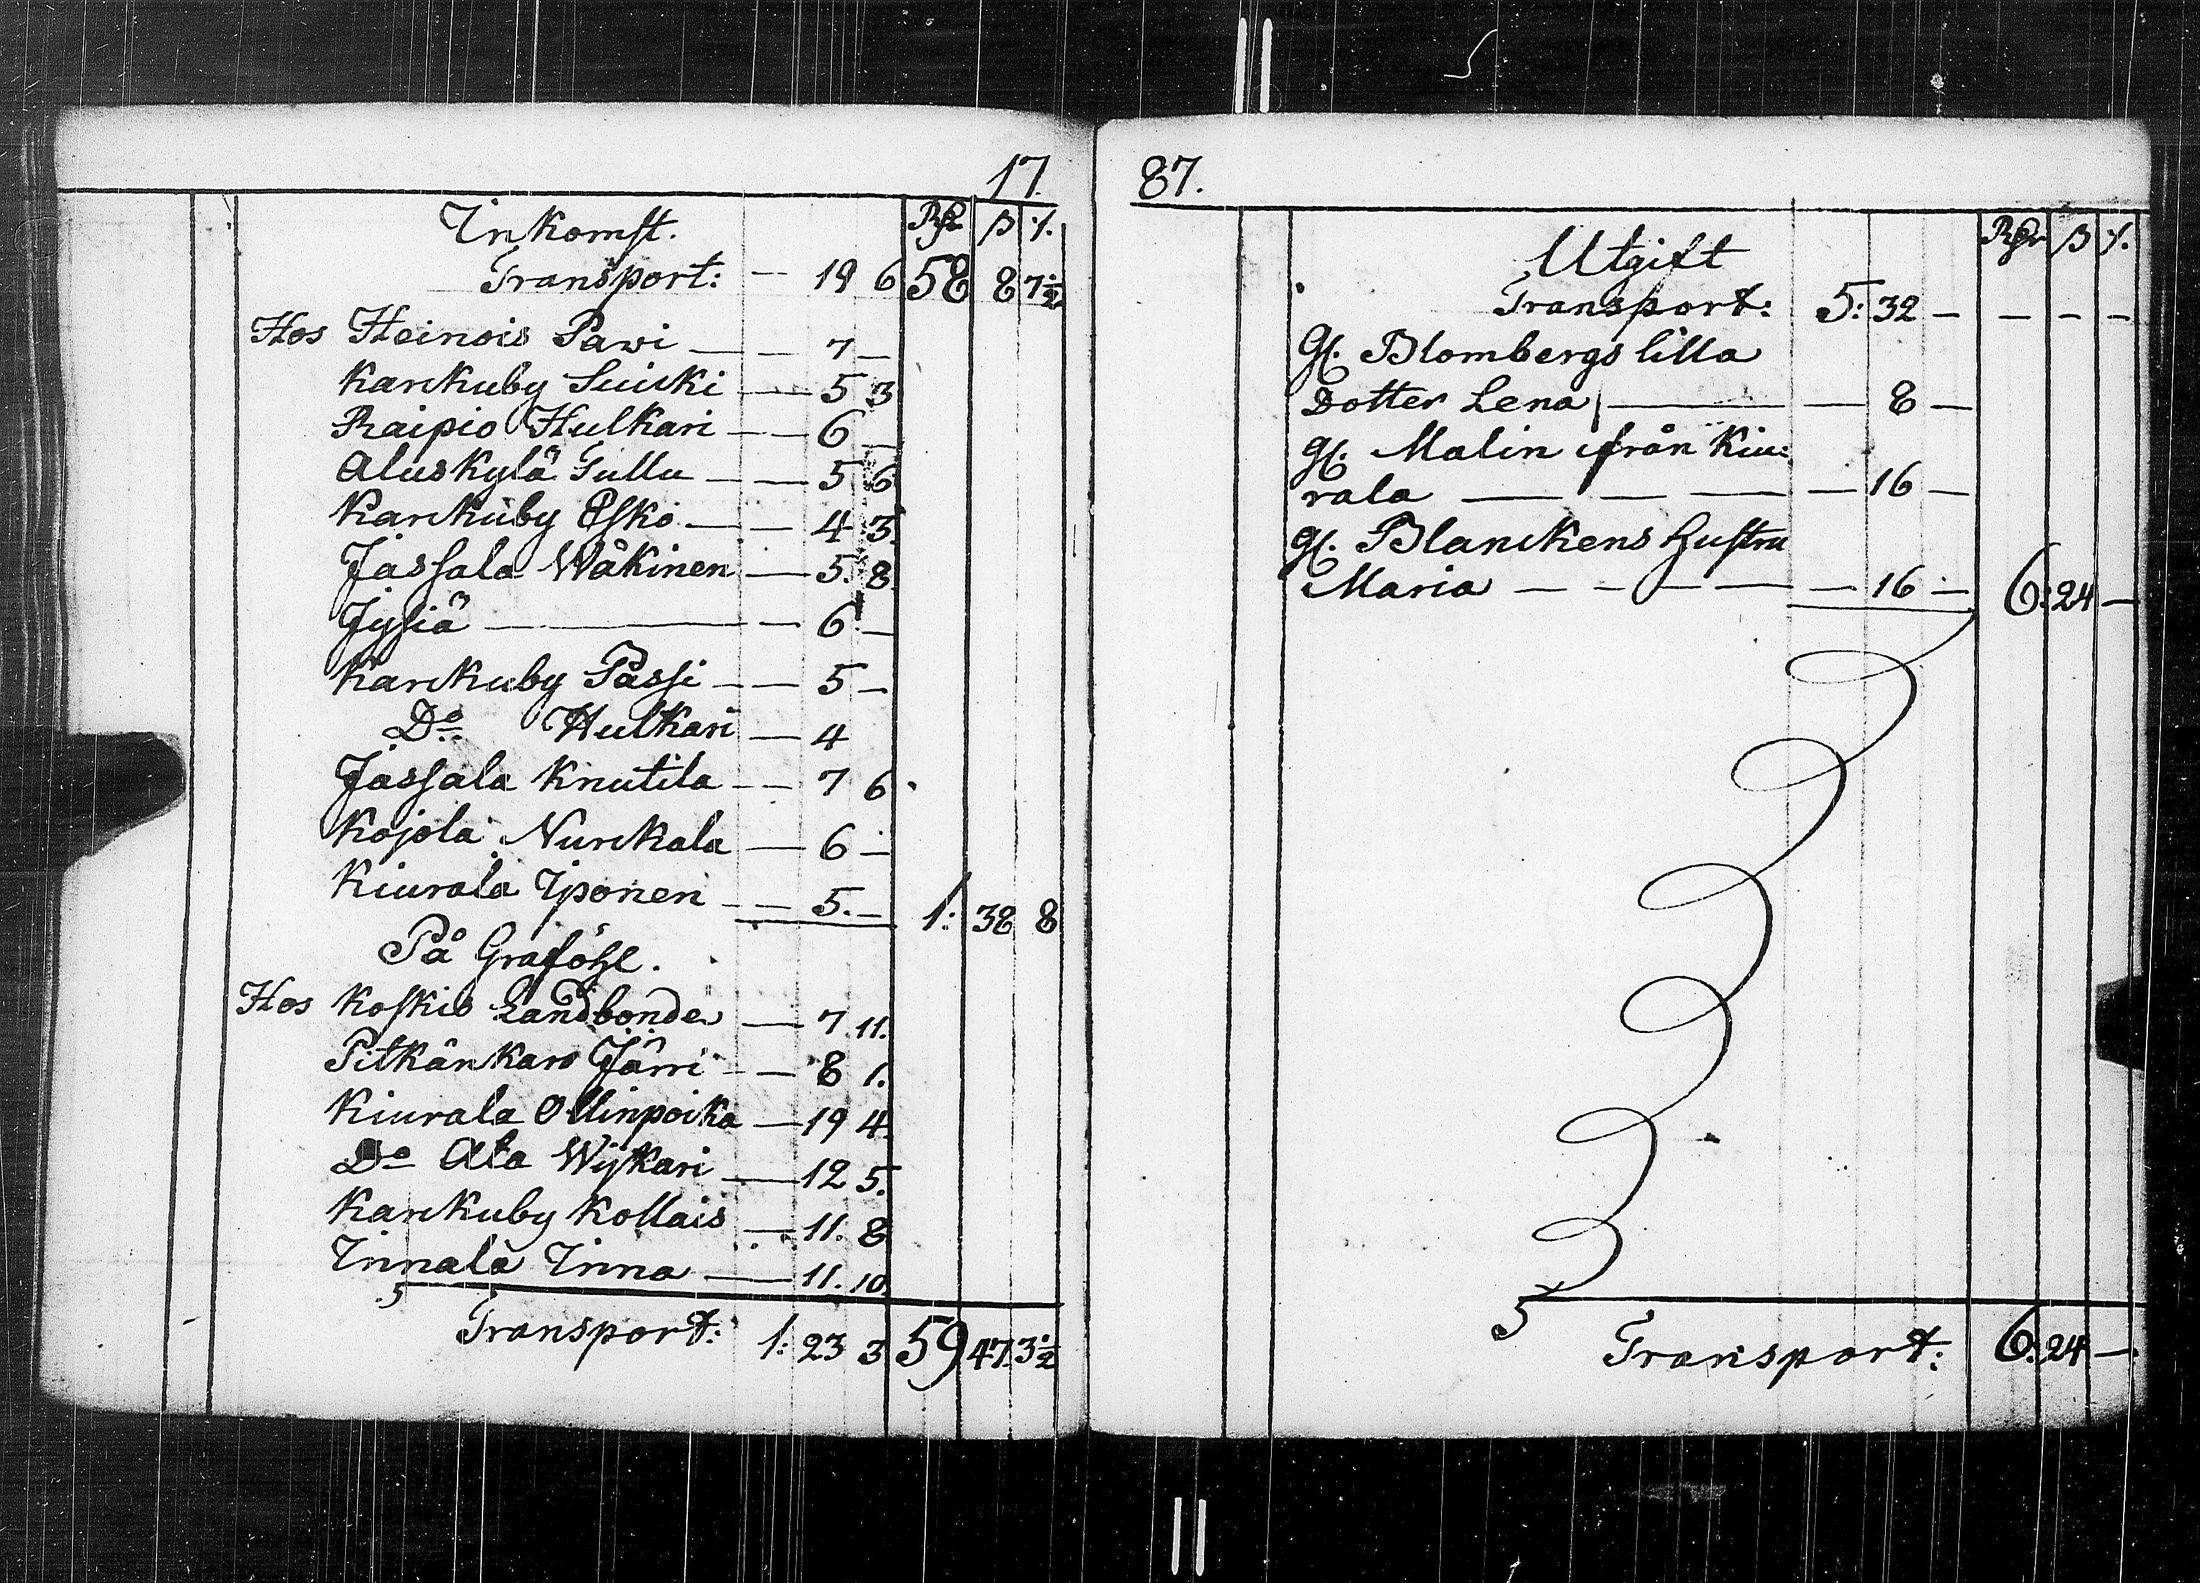 17
Inkomst. Rdr ß ₰.
Transport: — 19 6 58 8 7½
Hos Heinois Pawi — — 7 —
Karckuby Suicki — — 5 3
Raipio Hulkari — — 6 —
Aluskylä Gullu — — 5 6
Karckuby Esko — — 4 3.
Jassala Wåkinen — 5. 8.
Jysiä — — 6. —
Karckuby Passi — — 5 —
Do Hulkari — 4
Jassala Knutila — — 7 6.
Kojola Nurckala — 6 —
Kiurala Iponen — — 5. — 1: 38 8
På Graföhl.
Hos Koskis Landbonde — 7. 11.
Pitkänkaro Järri — — 8 1.
Kiurala Ollinpoika — 19 4.
Do Ala Wijkari — 12 5.
Karckuby Kollais — 11. 8
Innala Inna — 11. 10.
5
Transport: 1: 23 3 59 47. 3½
87.
Utgift Rdr ß ₰.
Transport: 5: 32 — — — —
Gl. Blombergs lilla
Dotter Lena — — 8 —
Gl. Malin ifrån Kiu:
rala — — — — 16 —
Gl. Blanckens Hustru
Maria — — — — — 16 — 6: 24 —
5
Transport: 6: 24 —